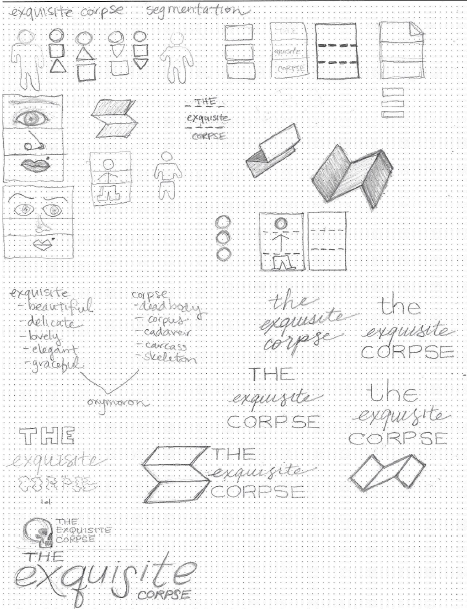 exquisite corpse segmentation
exquisite
CORPSE
THE
exquisite
CORPSE
exquisite
- beautiful
- delicate
- lovely
- elegant
- graceful
corpse
- dead body
- corpus
- cadaver
- carcass
- skeleton
oxymoron
the
exquisite
corpse
the
exquisite
CORPSE
THE
exquisite
CORPSE
the
exquisite
CORPSE
THE
exquisite
CORPSE
THE
exquisite
CORPSE
THE
EXQUISITE
CORPSE
THE
exquisite
CORPSE